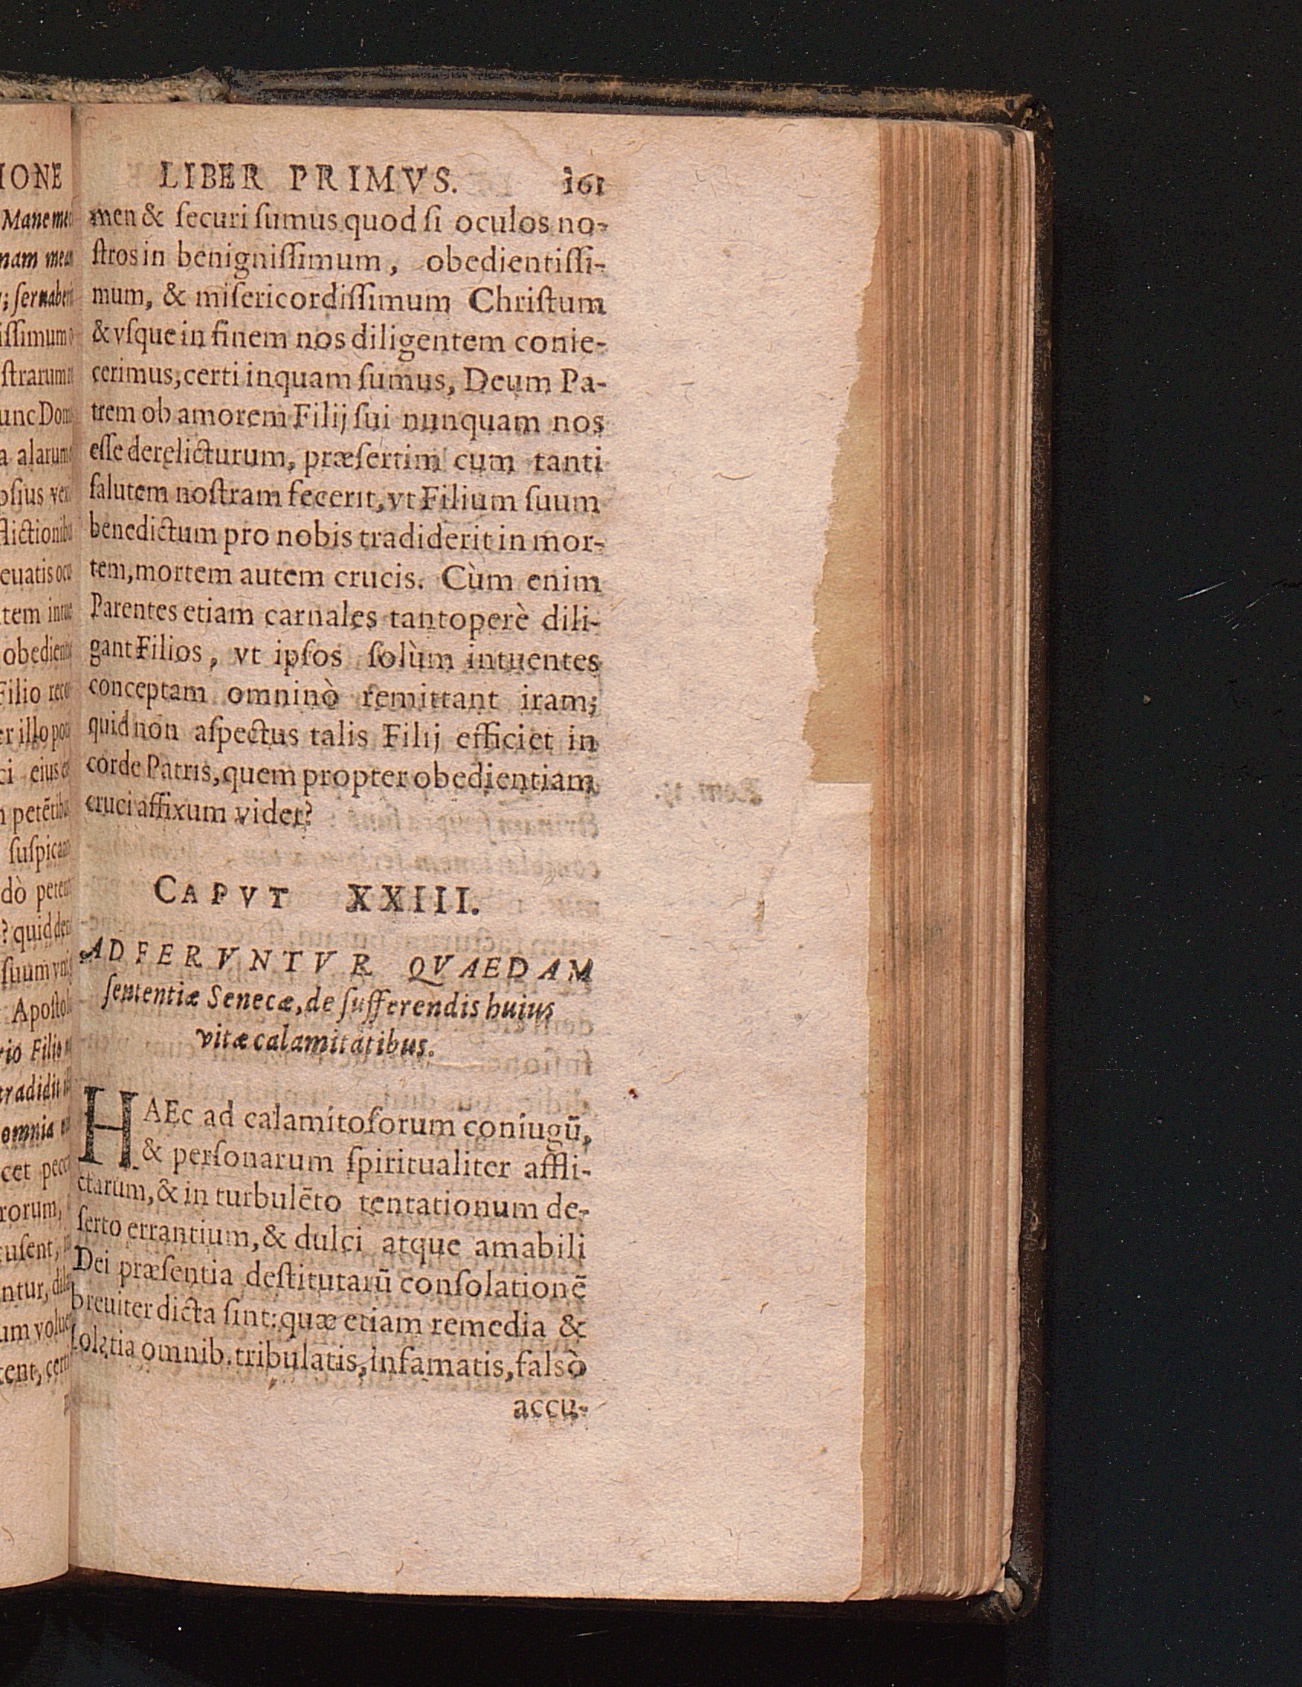 LIBER PRIMVS. 161
men & ſecuri ſumus quod ſi oculos no-
ſtros in benigniſſimum, obedientiſſi-
mum, & miſericordiſſimum Chriſtum
& vſque in finem nos diligentem conie-
cerimus, certi inquam ſumus, Deum Pa-
trem ob amorem Filij ſui nunquam nos
eſſe derelicturum, præſertim cum tanti
ſalutem noſtram fecerit, vt Filium ſuum
benedictum pro nobis tradiderit in mor-
tem, mortem autem crucis. Cùm enim
Parentes etiam carnales tantoperè dili-
gant Filios, vt ipſos ſolùm intuentes
conceptam omninò remittant iram;
quid non aſpectus talis Filij efficiet in
corde Patris, quem propter obedientiam
cruci affixum videt?
CAPVT XXIII.
ADFERVNTVR QVAEDAM
ſententiæ Senecæ, de ſufferendis huius
vitæ calamitatibus.
HAEc ad calamitoſorum coniugū,
& perſonarum ſpiritualiter affli-
ctarum, & in turbulēto tentationum de-
ſerto errantium, & dulci atque amabili
Dei præſentia deſtitutarū conſolationē
breuiter dicta ſint: quæ etiam remedia &
ſolatia omnib. tribulatis, infamatis, falsò
accu-
IONE
Mane
nam
iſſimum
ſtrarum
unc
a alarum
obedien
Filio
ci eius
ſuſpic
dò
? quid
ſuum
Apoſtol
rio Filio
tradidit
omnia
rorum,